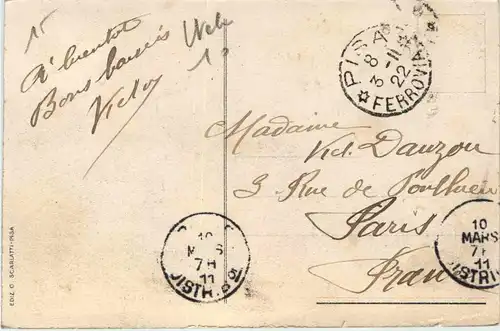 15
A' bientôt
Bons baisers
Victor
PISA
8 - 11
3
22
★ FERROVIA
Madame
Vict. Dauzon
3 Rue de Ponthieu
Paris
Fran
10
MARS
7H
11
DISTRIB
10
MARS
7H
11
DISTRIB
EDIZ. G. SCARLATTI-PISA